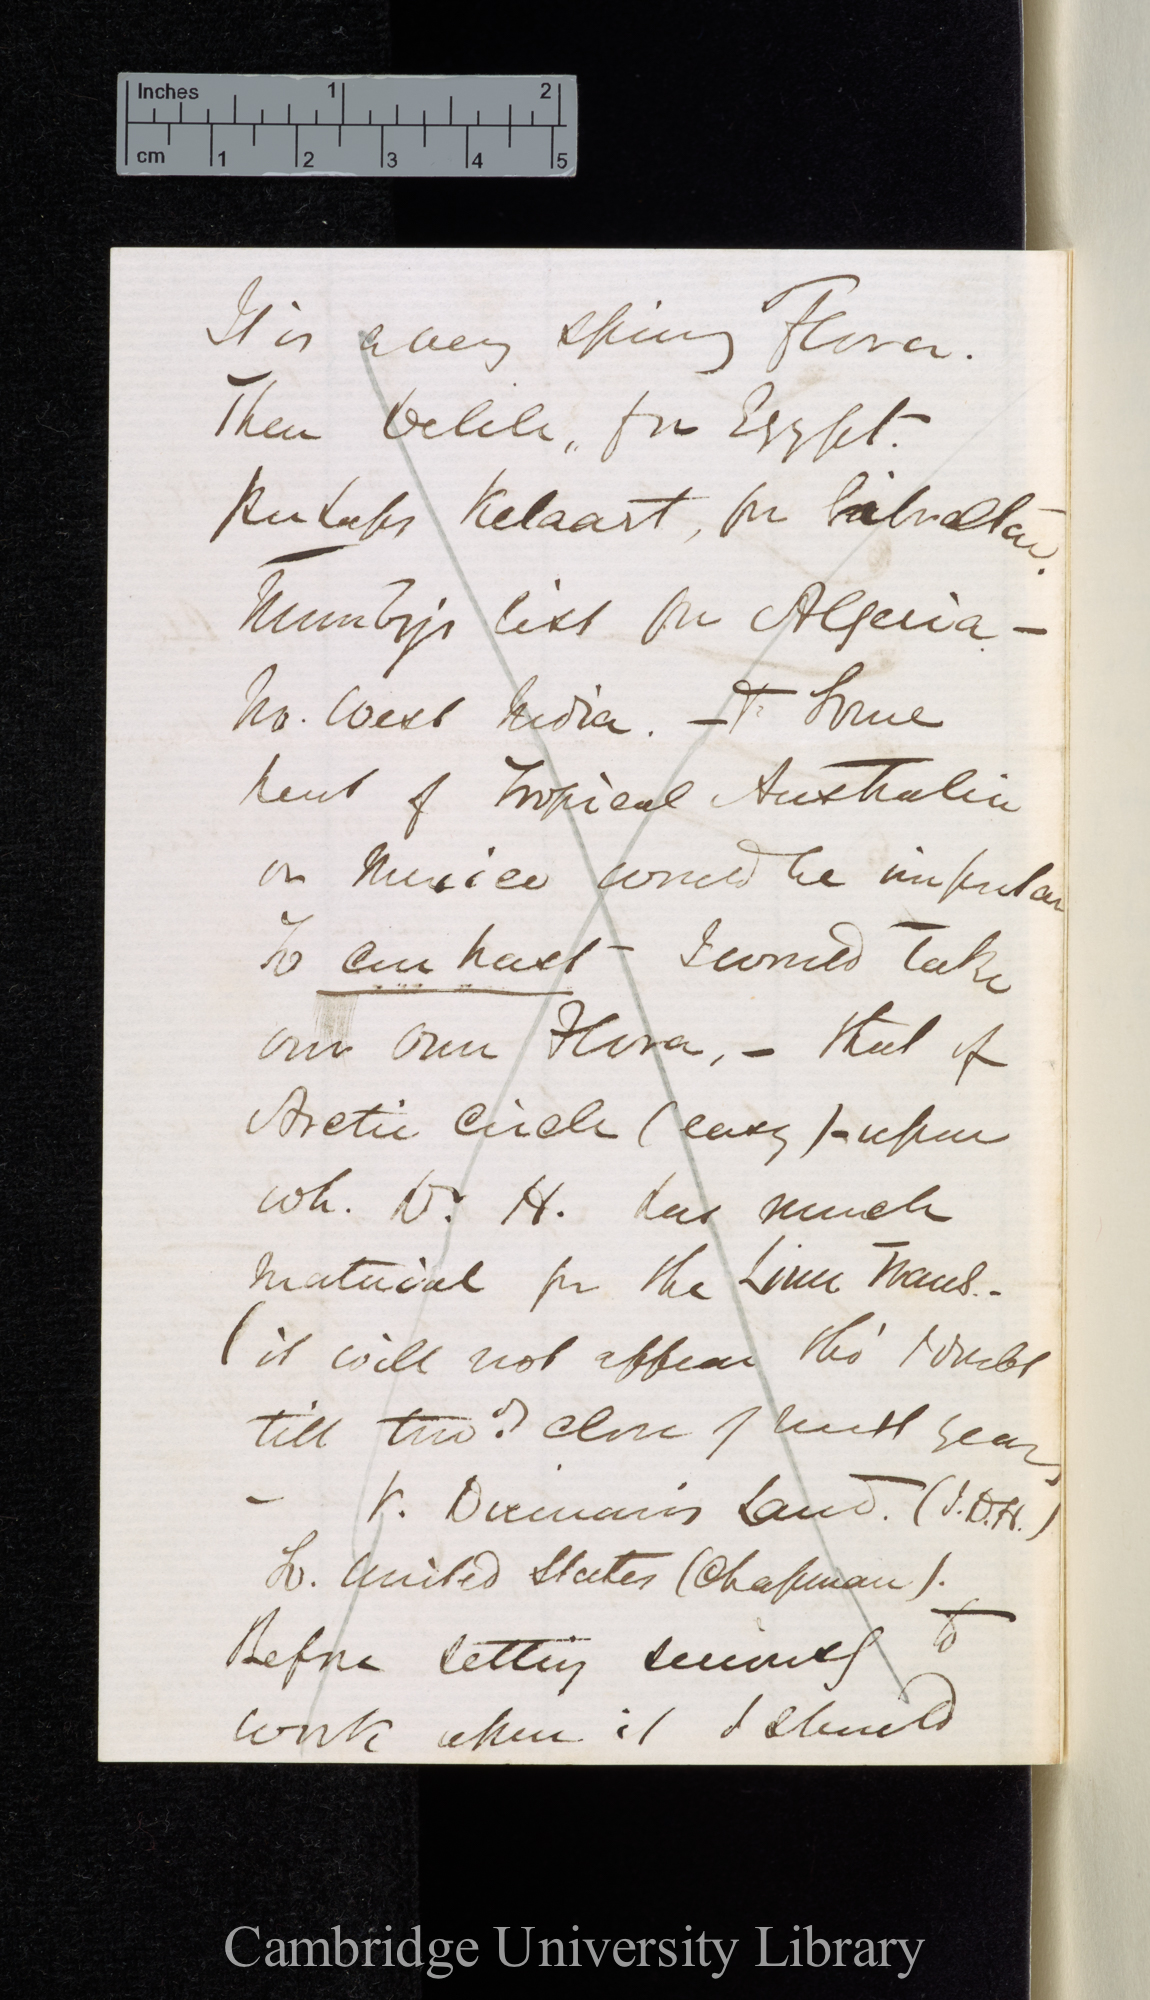 Inches 1 2
cm 1 2 3 4 5
It is a very spiny Flora.
Then Delile, for Egypt.
Perhaps Kelaart, for Gibraltar.
Munby's list for Algeria —
No. West India. — Some
part of Tropical Australia
or Mexico would be important
To contrast — I would take
our own Flora, — that of
Arctic Circle (easy) — upon
wh. Dr. H. has much
material for the Linn Trans. —
(it will not appear tho' I doubt
till twd. close of next year)
— V. Diemans Land. (J.D.H.)
So. United States (Chapman).
Before setting seriously to
work upon it I should
Cambridge University Library